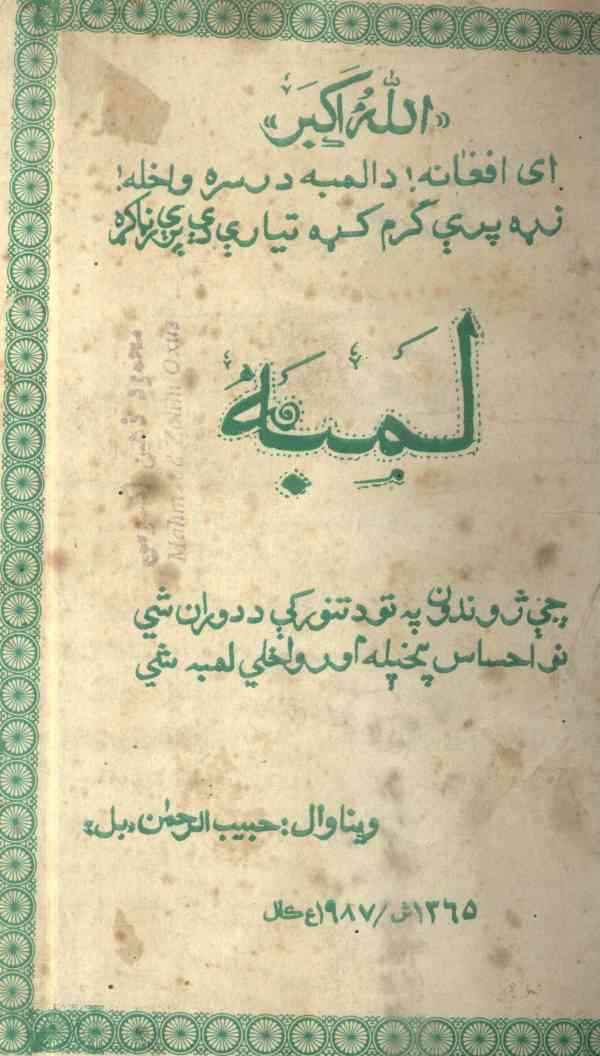 «اللهُ اَکبَر»
ای افغانه! دا لمبه درسره واخله!
زړه پرې گرم کړه تیارې دې پرې رڼا کړه
لمبه
چې ژوندون په تود تنور کې د دوران شي
نو احساس پخپله اور واخلي لمبه شي
ویناوال: حبیب الرحمٰن «بل»
۱۳۶۵ش/۱۹۸۷ع کال